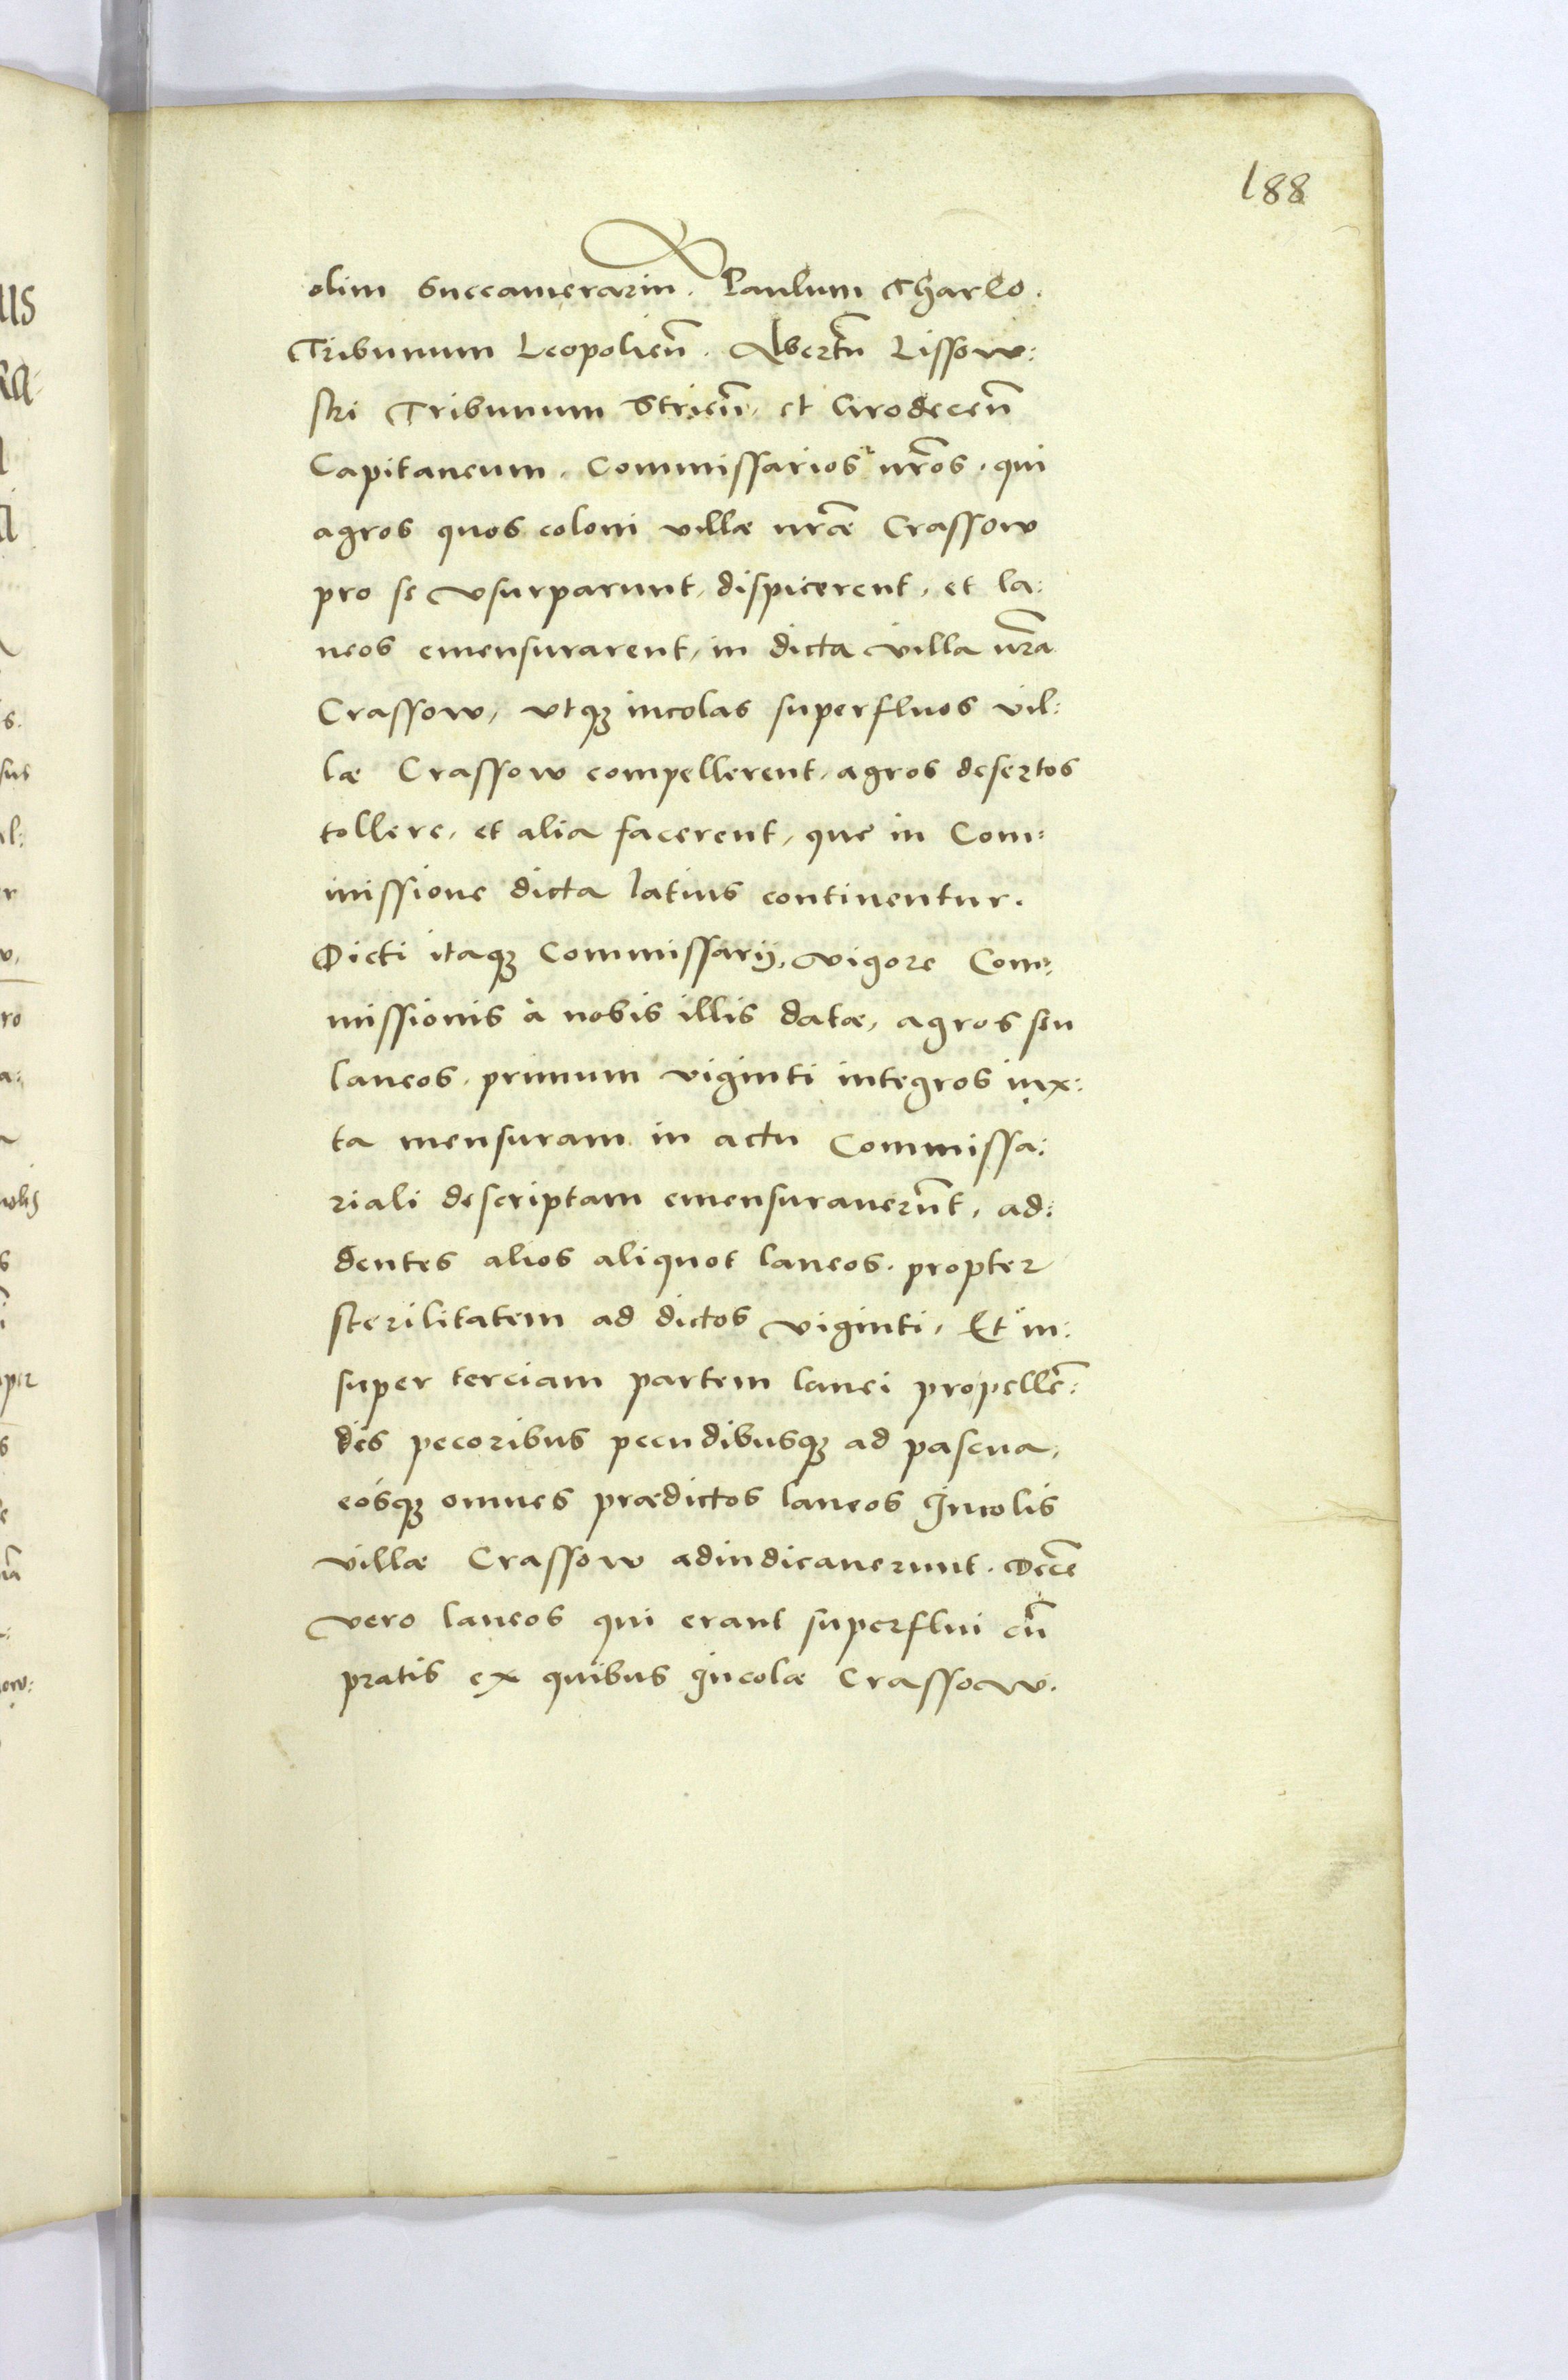 188
olim Succamerariu. Paulum Tharlo.
Tribunum Leopolieñ. Albertũ Lissow:
ski Tribunum Strieñ, et Grodeceñ
Capitaneum. Commissarios nr̃os. qui
agros quos coloni villæ nr̃æ Crassow
pro se vsurparunt, dispicerent, et la:
neos emensurarent, in dicta villa nr̃a
Crassow, vtqꝫ incolas superfluos vil:
læ Crassow compellerent, agros desertos
tollere, et alia facerent, que in Com:
missione dicta latius continentur.
Dicti itaqꝫ Commissarij, vigore Com:
missionis à nobis illis datæ, agros seu
laneos, primum viginti integros iux:
ta mensuram in actu Commissa:
riali descriptam emensurauerũt, ad:
dentes alios aliquot laneos. propter
sterilitatem ad dictos viginti, Et in:
super terciam partem lanei propellẽ:
dis pecoribus pecudibusqꝫ ad pascua,
eosqꝫ omnes prædictos laneos Incolis
villæ Crassow adiudicauerunt. Decẽ
vero laneos qui erant superflui cũ
pratis ex quibus Incolæ Crassow.